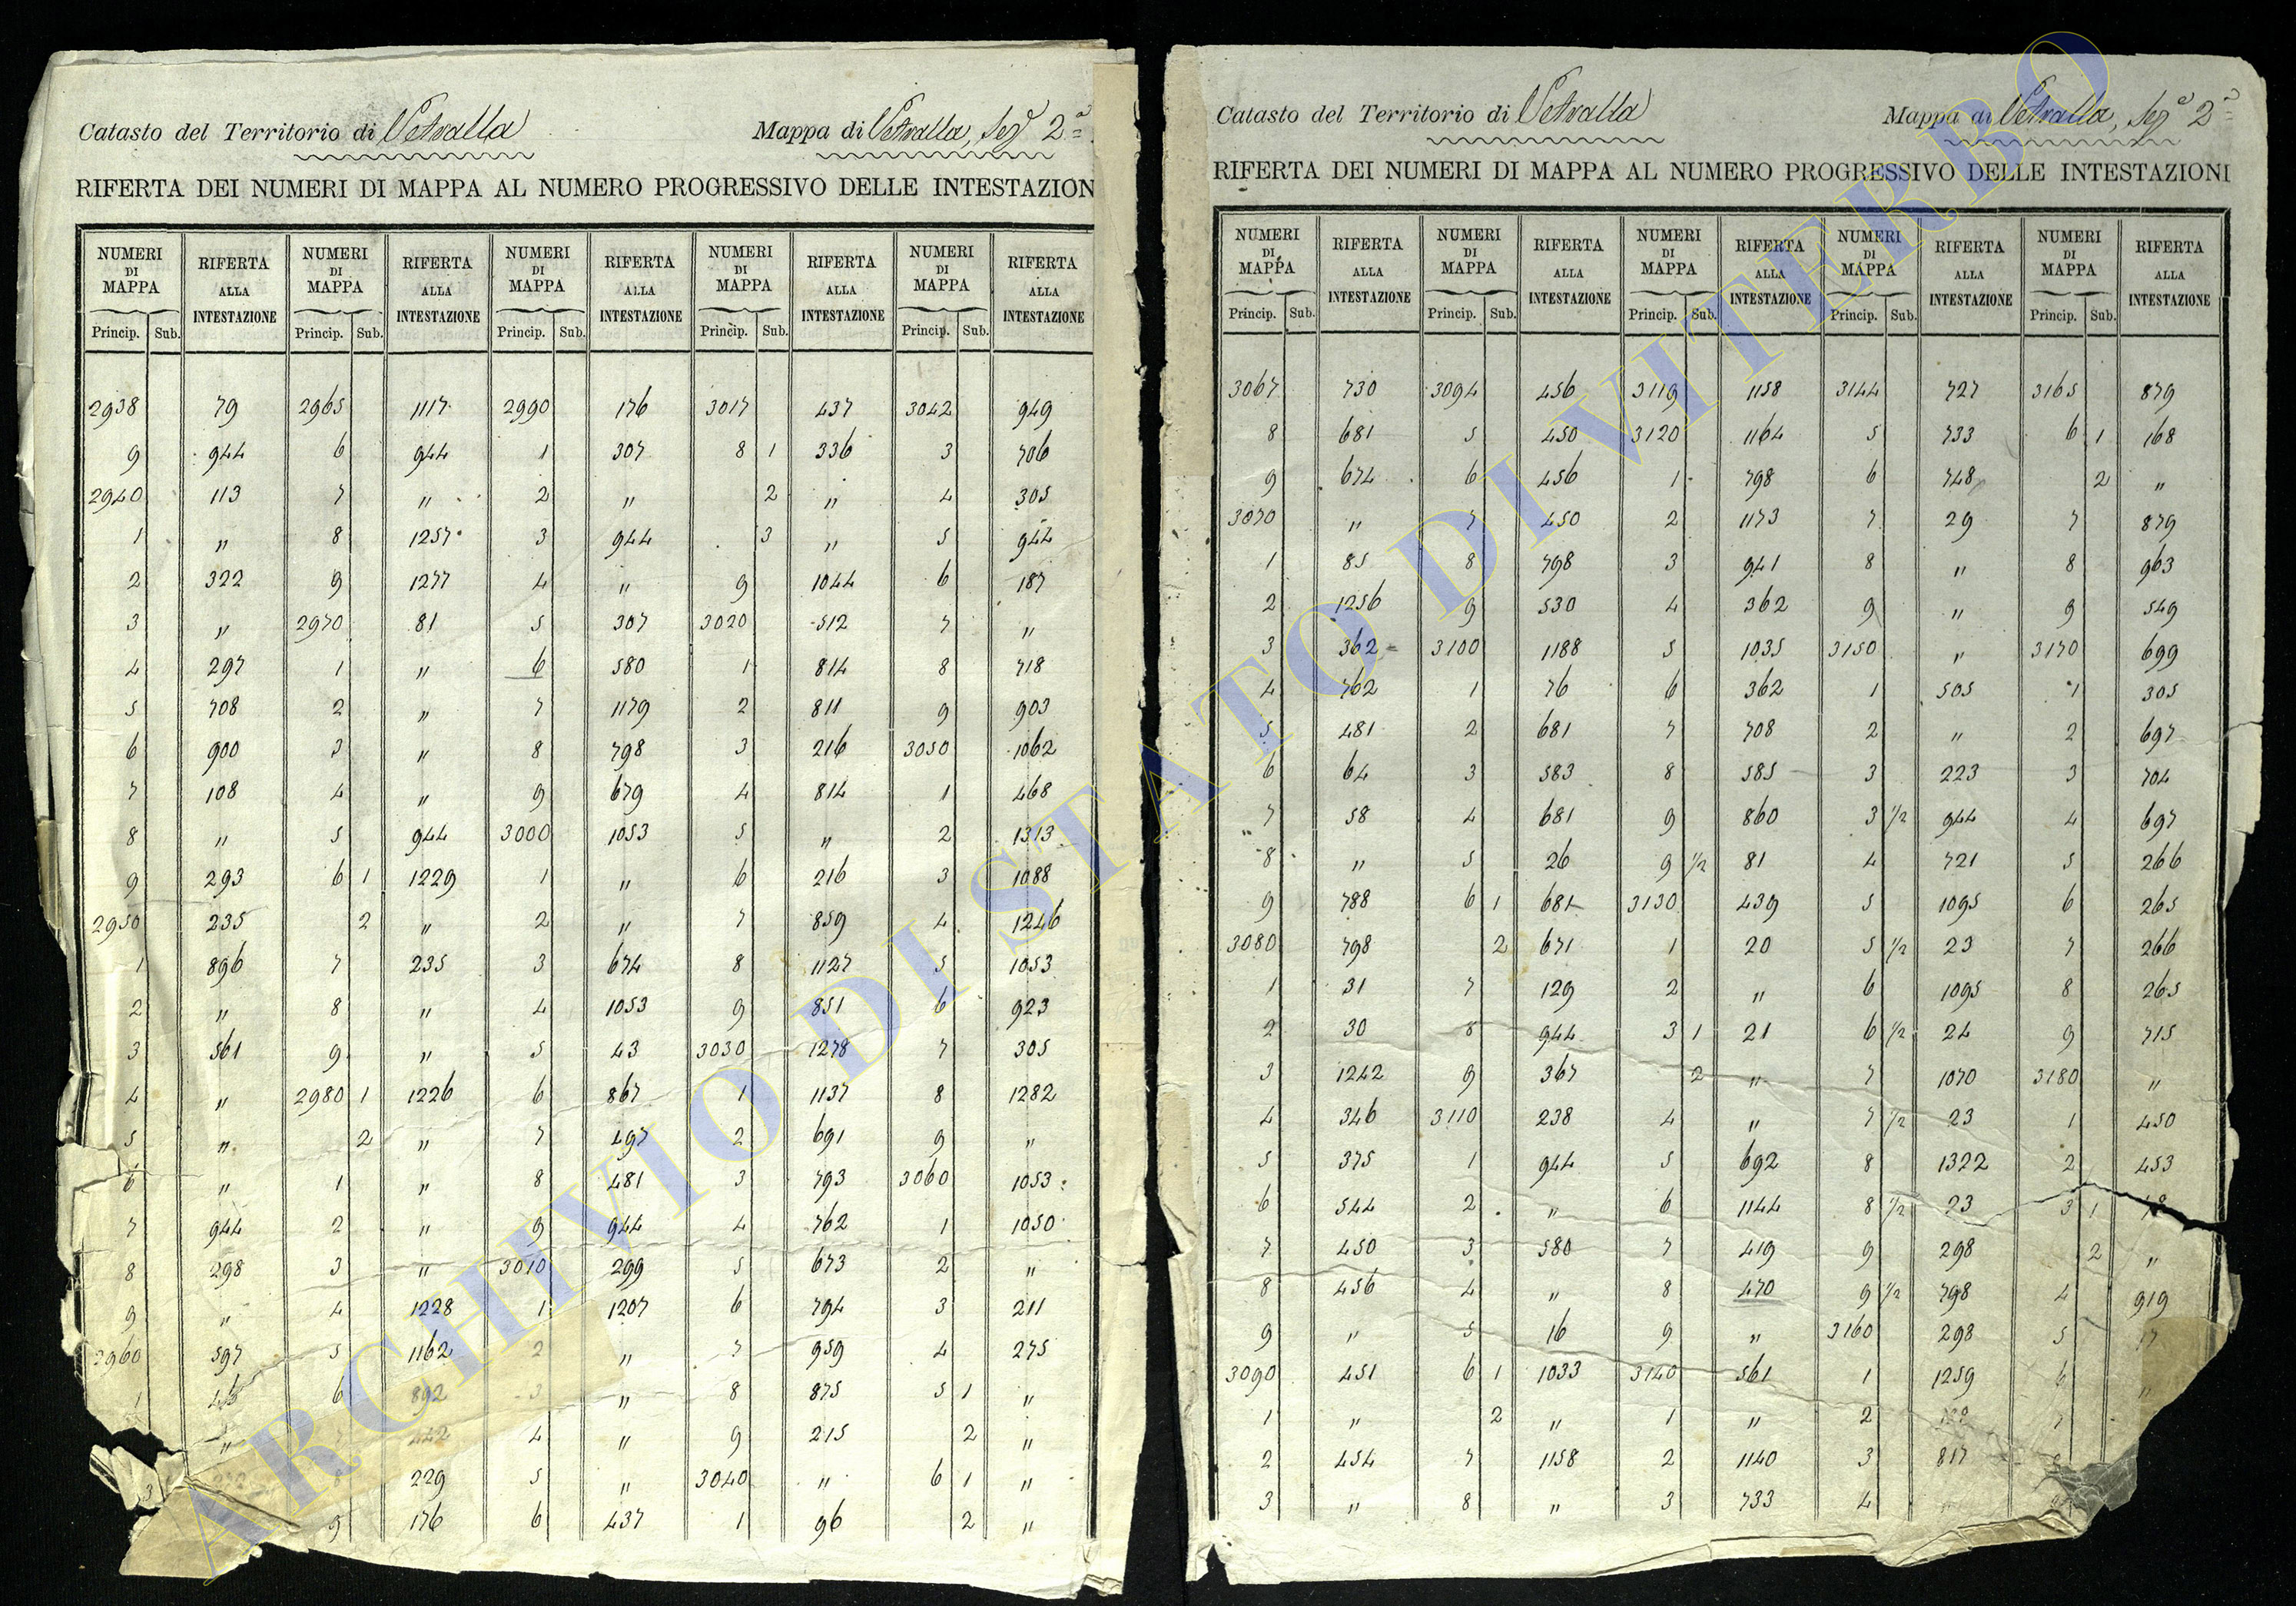 Catasto del Territorio di Vetralla Mappa di Vetralla, Sez.e 2.a
RIFERTA DEI NUMERI DI MAPPA AL NUMERO PROGRESSIVO DELLE INTESTAZION
NUMERI DI MAPPA RIFERTA ALLA INTESTAZIONE NUMERI DI MAPPA RIFERTA ALLA INTESTAZIONE NUMERI DI MAPPA RIFERTA ALLA INTESTAZIONE NUMERI DI MAPPA RIFERTA ALLA INTESTAZIONE NUMERI DI MAPPA RIFERTA ALLA INTESTAZIONE
Princip. Sub. Princip. Sub. Princip. Sub. Princip. Sub. Princip. Sub.
2938 79 2965 1117 2990 176 3017 437 3042 949
9 944 6 944 1 307 8 1 336 3 706
2940 113 7 " 2 " 2 " 4 305
1 " 8 1257 3 944 3 " 5 944
2 322 9 1277 4 " 9 1044 6 187
3 " 2970 81 5 307 3020 512 7 "
4 297 1 " 6 580 1 814 8 718
5 708 2 " 7 1179 2 811 9 903
6 900 3 " 8 798 3 216 3050 1062
7 108 4 " 9 679 4 814 1 468
8 " 5 944 3000 1053 5 " 2 1313
9 293 6 1 1229 1 " 6 216 3 1088
2950 235 2 " 2 " 7 859 4 1246
1 896 7 235 3 674 8 1127 5 1053
2 " 8 " 4 1053 9 851 6 923
3 561 9 " 5 43 3030 1278 7 305
4 " 2980 1 1226 6 867 1 1137 8 1282
5 " 2 " 7 497 2 691 9 "
6 " 1 " 8 481 3 793 3060 1053
7 944 2 " 9 944 4 762 1 1050
8 298 3 " 3010 299 5 673 2 "
9 " 4 1228 1 1207 6 794 3 211
2960 597 5 1162 2 " 7 959 4 275
1 46 6 892 3 " 8 875 5 1 "
" 7 442 4 " 9 215 2 "
3 8 229 5 " 3040 " 6 1 "
9 176 6 437 1 96 2 "
Catasto del Territorio di Vetralla Mappa di Vetralla, Sez.e 2.a
RIFERTA DEI NUMERI DI MAPPA AL NUMERO PROGRESSIVO DELLE INTESTAZIONI
NUMERI DI MAPPA RIFERTA ALLA INTESTAZIONE NUMERI DI MAPPA RIFERTA ALLA INTESTAZIONE NUMERI DI MAPPA RIFERTA ALLA INTESTAZIONE NUMERI DI MAPPA RIFERTA ALLA INTESTAZIONE NUMERI DI MAPPA RIFERTA ALLA INTESTAZIONE
Princip. Sub. Princip. Sub. Princip. Sub. Princip. Sub. Princip. Sub.
3067 730 3094 456 3119 1158 3144 727 3165 879
8 681 5 450 3120 1164 5 733 6 1 168
9 674 6 456 1 798 6 748 2 "
3070 " 7 450 2 1173 7 29 7 879
1 85 8 798 3 941 8 " 8 963
2 1256 9 530 4 362 9 " 9 549
3 362 3100 1188 5 1035 3150 " 3170 699
4 762 1 76 6 362 1 505 1 305
5 481 2 681 7 708 2 " 2 697
6 64 3 583 8 585 3 223 3 704
7 58 4 681 9 860 3 1/2 944 4 697
8 " 5 26 9 1/2 81 4 721 5 266
9 788 6 1 681 3130 439 5 1095 6 265
3080 798 2 671 1 20 5 1/2 23 7 266
1 31 7 129 2 " 6 1095 8 265
2 30 8 944 3 1 21 6 1/2 24 9 715
3 1242 9 367 2 " 7 1070 3180 "
4 346 3110 238 4 " 7 1/2 23 1 450
5 375 1 944 5 692 8 1322 2 453
6 544 2 " 6 1144 8 1/2 23 3 1
7 450 3 580 7 419 9 298 2 "
8 456 4 " 8 470 9 1/2 798 4 919
9 " 5 16 9 " 3160 298 5 17
3090 451 6 1 1033 3140 561 1 1259 6 "
1 " 2 " 1 " 2 7
2 454 7 1158 2 1140 3 817
3 " 8 " 3 733 4
ARCHIVIO DI STATO DI VITERBO